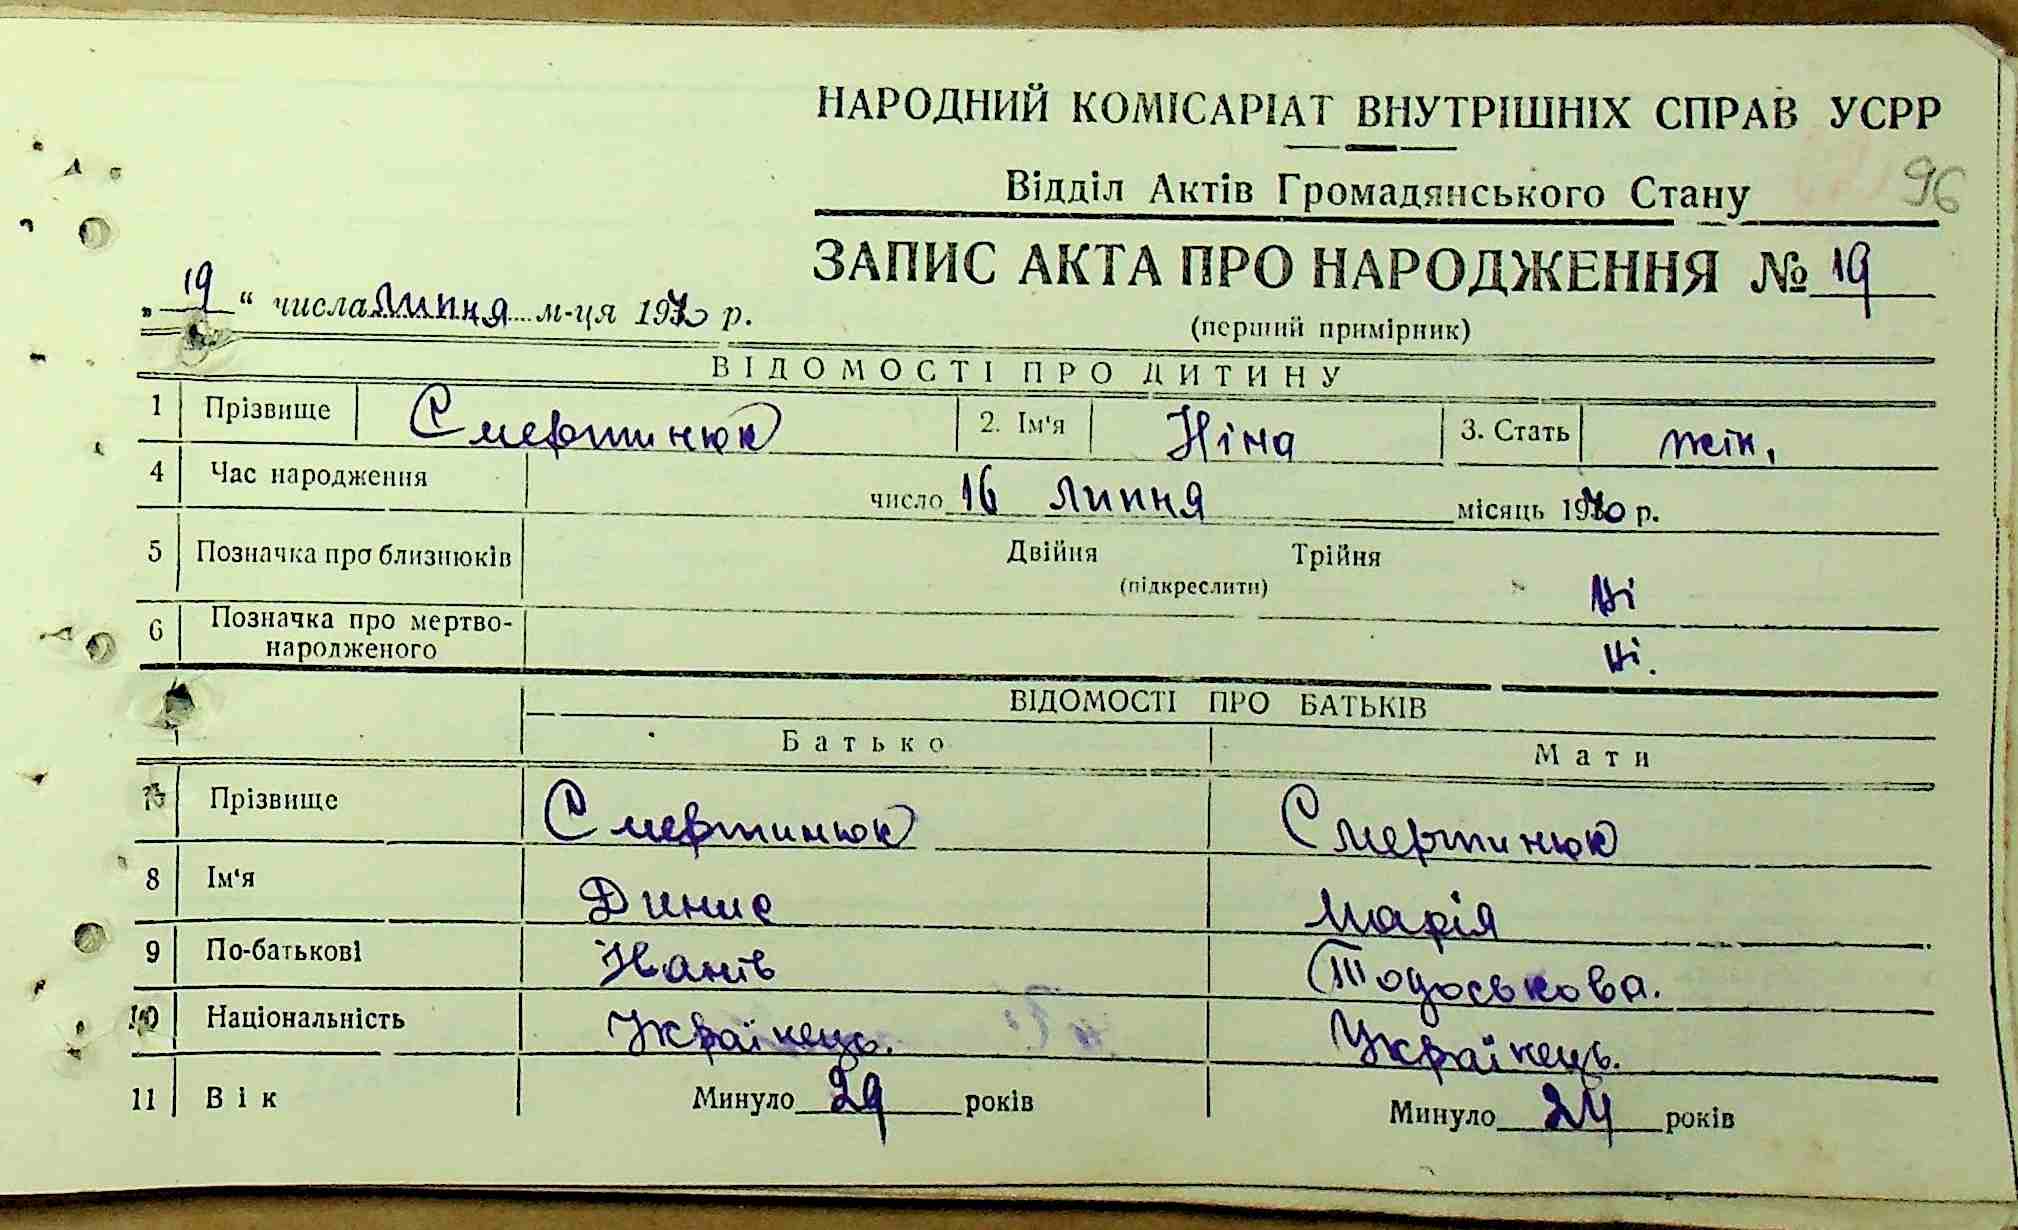 НАРОДНИЙ КОМІСАРІАТ ВНУТРІШНІХ СПРАВ УСРР
Відділ Актів Громадянського Стану 96
ЗАПИС АКТА ПРО НАРОДЖЕННЯ № 19
„ 19 “ числа липня м-ця 19 р.
(перший примірник)
ВІДОМОСТІ ПРО ДИТИНУ
1 Прізвище Смертинюк 2. Ім'я Ніна 3. Стать жін.
4 Час народження число 16 липня місяць 19 р.
5 Позначка про близнюків Двійня Трійня
(підкреслити) Ні
6 Позначка про мертво-
народженого Ні.
ВІДОМОСТІ ПРО БАТЬКІВ
Батько Мати
7 Прізвище Смертинюк Смертинюк
8 Ім'я Динис Марія
9 По-батькові Тодоськова.
10 Національність Українець. Українець.
11 Вік Минуло 29 років Минуло 24 років